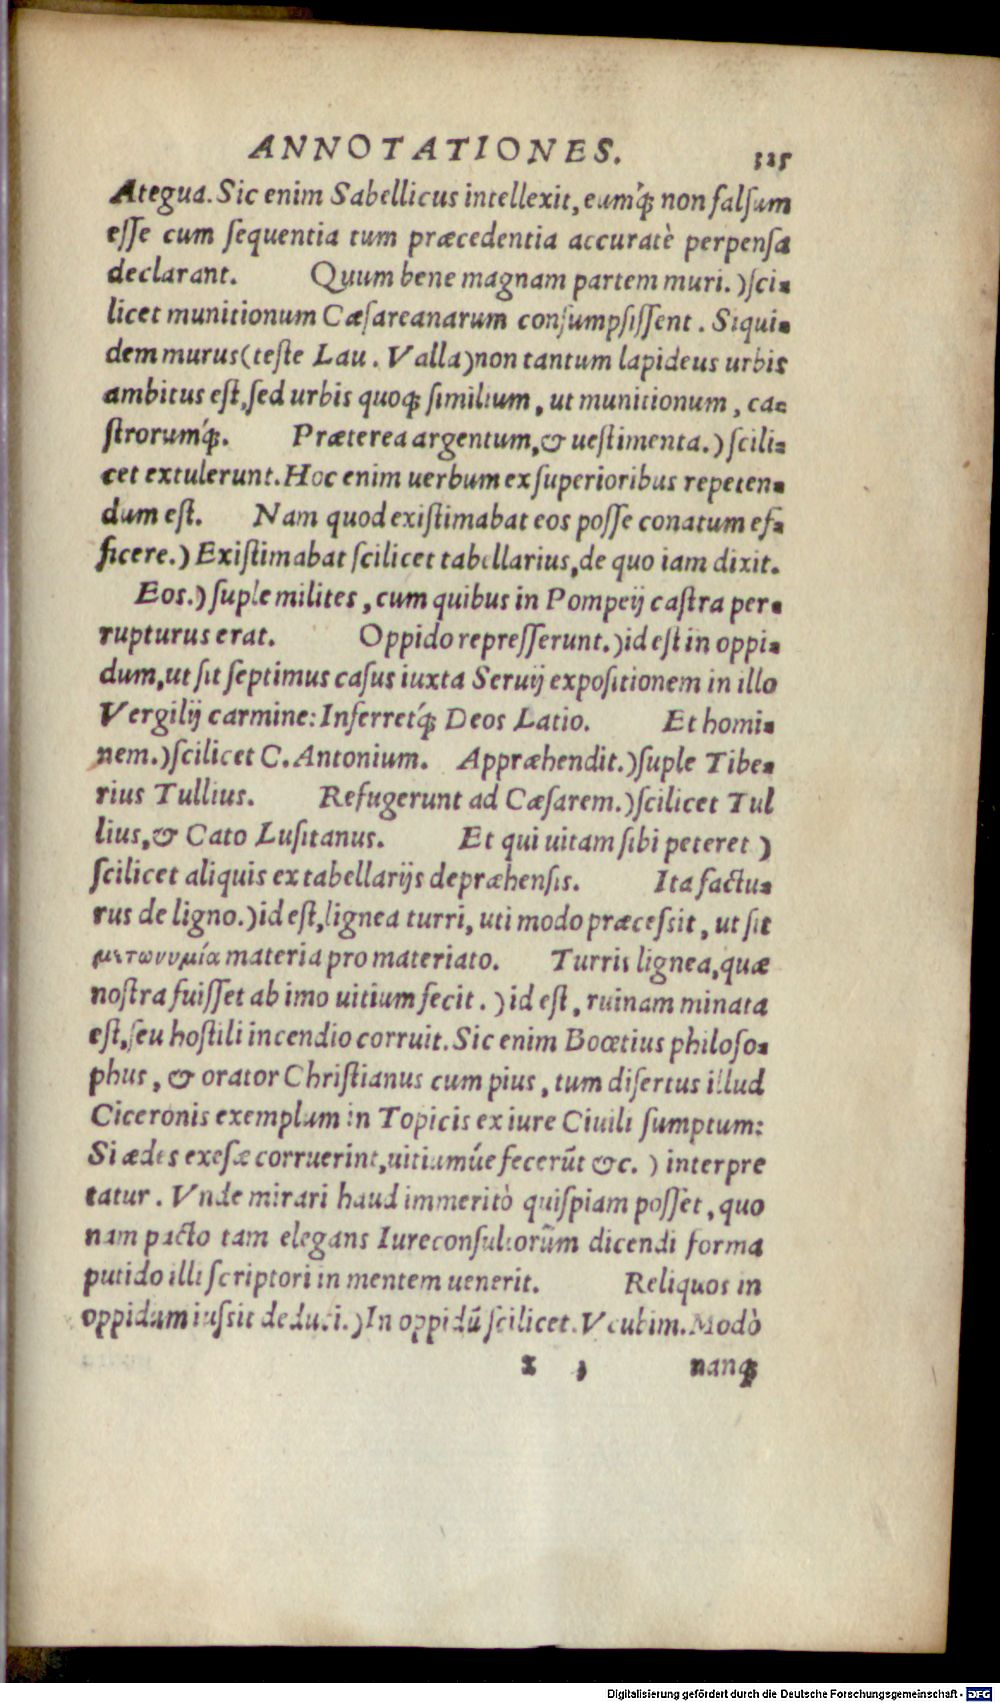 ANNOTATIONES. 325
Ategua. Sic enim Sabellicus intellexit, eumq́; non falsum
esse cum sequentia tum præcedentia accuratè perpensa
declarant. Quum bene magnam partem muri.) sci-
licet munitionum Cæsareanarum consumpsissent. Siqui-
dem murus (teste Lau. Valla) non tantum lapideus urbis
ambitus est, sed urbis quoq; similium, ut munitionum, ca-
strorumq́;. Præterea argentum, & uestimenta.) scili-
cet extulerunt. Hoc enim uerbum ex superioribus repeten-
dum est. Nam quod existimabat eos posse conatum ef-
ficere.) Existimabat scilicet tabellarius, de quo iam dixit.
Eos.) suple milites, cum quibus in Pompeij castra per-
rupturus erat. Oppido represserunt.) id est in oppi-
dum, ut sit septimus casus iuxta Seruij expositionem in illo
Vergilij carmine: Inferretq́; Deos Latio. Et homi-
nem.) scilicet C. Antonium. Appræhendit.) suple Tibe-
rius Tullius. Refugerunt ad Cæsarem.) scilicet Tul
lius, & Cato Lusitanus. Et qui uitam sibi peteret )
scilicet aliquis ex tabellarijs depræhensis. Ita factu-
rus de ligno.) id est, lignea turri, uti modo præcessit, ut sit
μετωνυμία materia pro materiato. Turris lignea, quæ
nostra fuisset ab imo uitium fecit.) id est, ruinam minata
est, seu hostili incendio corruit. Sic enim Boœtius philoso-
phus, & orator Christianus cum pius, tum disertus illud
Ciceronis exemplum in Topicis ex iure Ciuili sumptum:
Si ædes exesæ corruerint, uitiumúe fecerũt &c. ) interpre
tatur. Vnde mirari haud immeritò quispiam posset, quo
nam pacto tam elegans Iureconsultorũm dicendi forma
putido illi scriptori in mentem uenerit. Reliquos in
oppidum iussit deduci.) In oppidũ scilicet Vcubim. Modò
x 3 nanq;
Digitalisierung gefördert durch die Deutsche Forschungsgemeinschaft - DFG